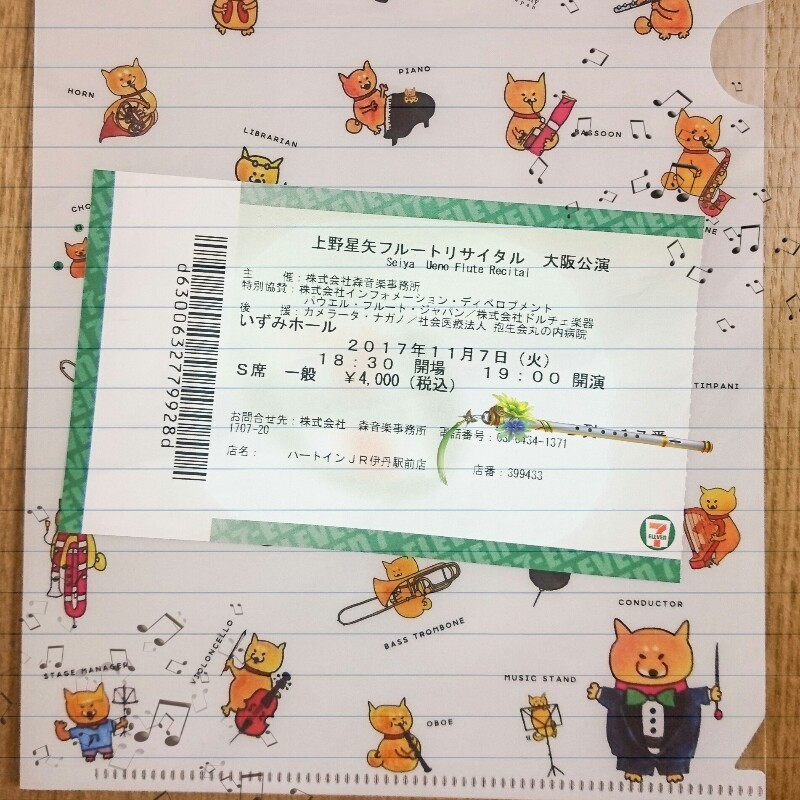 HORN
PIANO
LIBRARIAN
BASSOON
上野星矢フルートリサイタル 大阪公演
Seiya Ueno Flute Recital
主 催：株式会社森音楽事務所
特別協賛：株式会社インフォメーション・ディベロプメント
パウエル・フルート・ジャパン／株式会社ドルチェ楽器
後 援：カメラータ・ナガノ／社会医療法人 抱生会丸の内病院
いずみホール
2017年11月7日（火）
18：30 開場 19：00 開演
S席 一般 ￥4,000（税込）
お問合せ先：株式会社 森音楽事務所 電話番号：
1707-20
店名： ハートインJR伊丹駅前店 店番：399433
d6300632779928d
7 ELEVEN
TIMPANI
BASS TROMBONE
CONDUCTOR
STAGE MANAGER
VIOLONCELLO
MUSIC STAND
OBOE